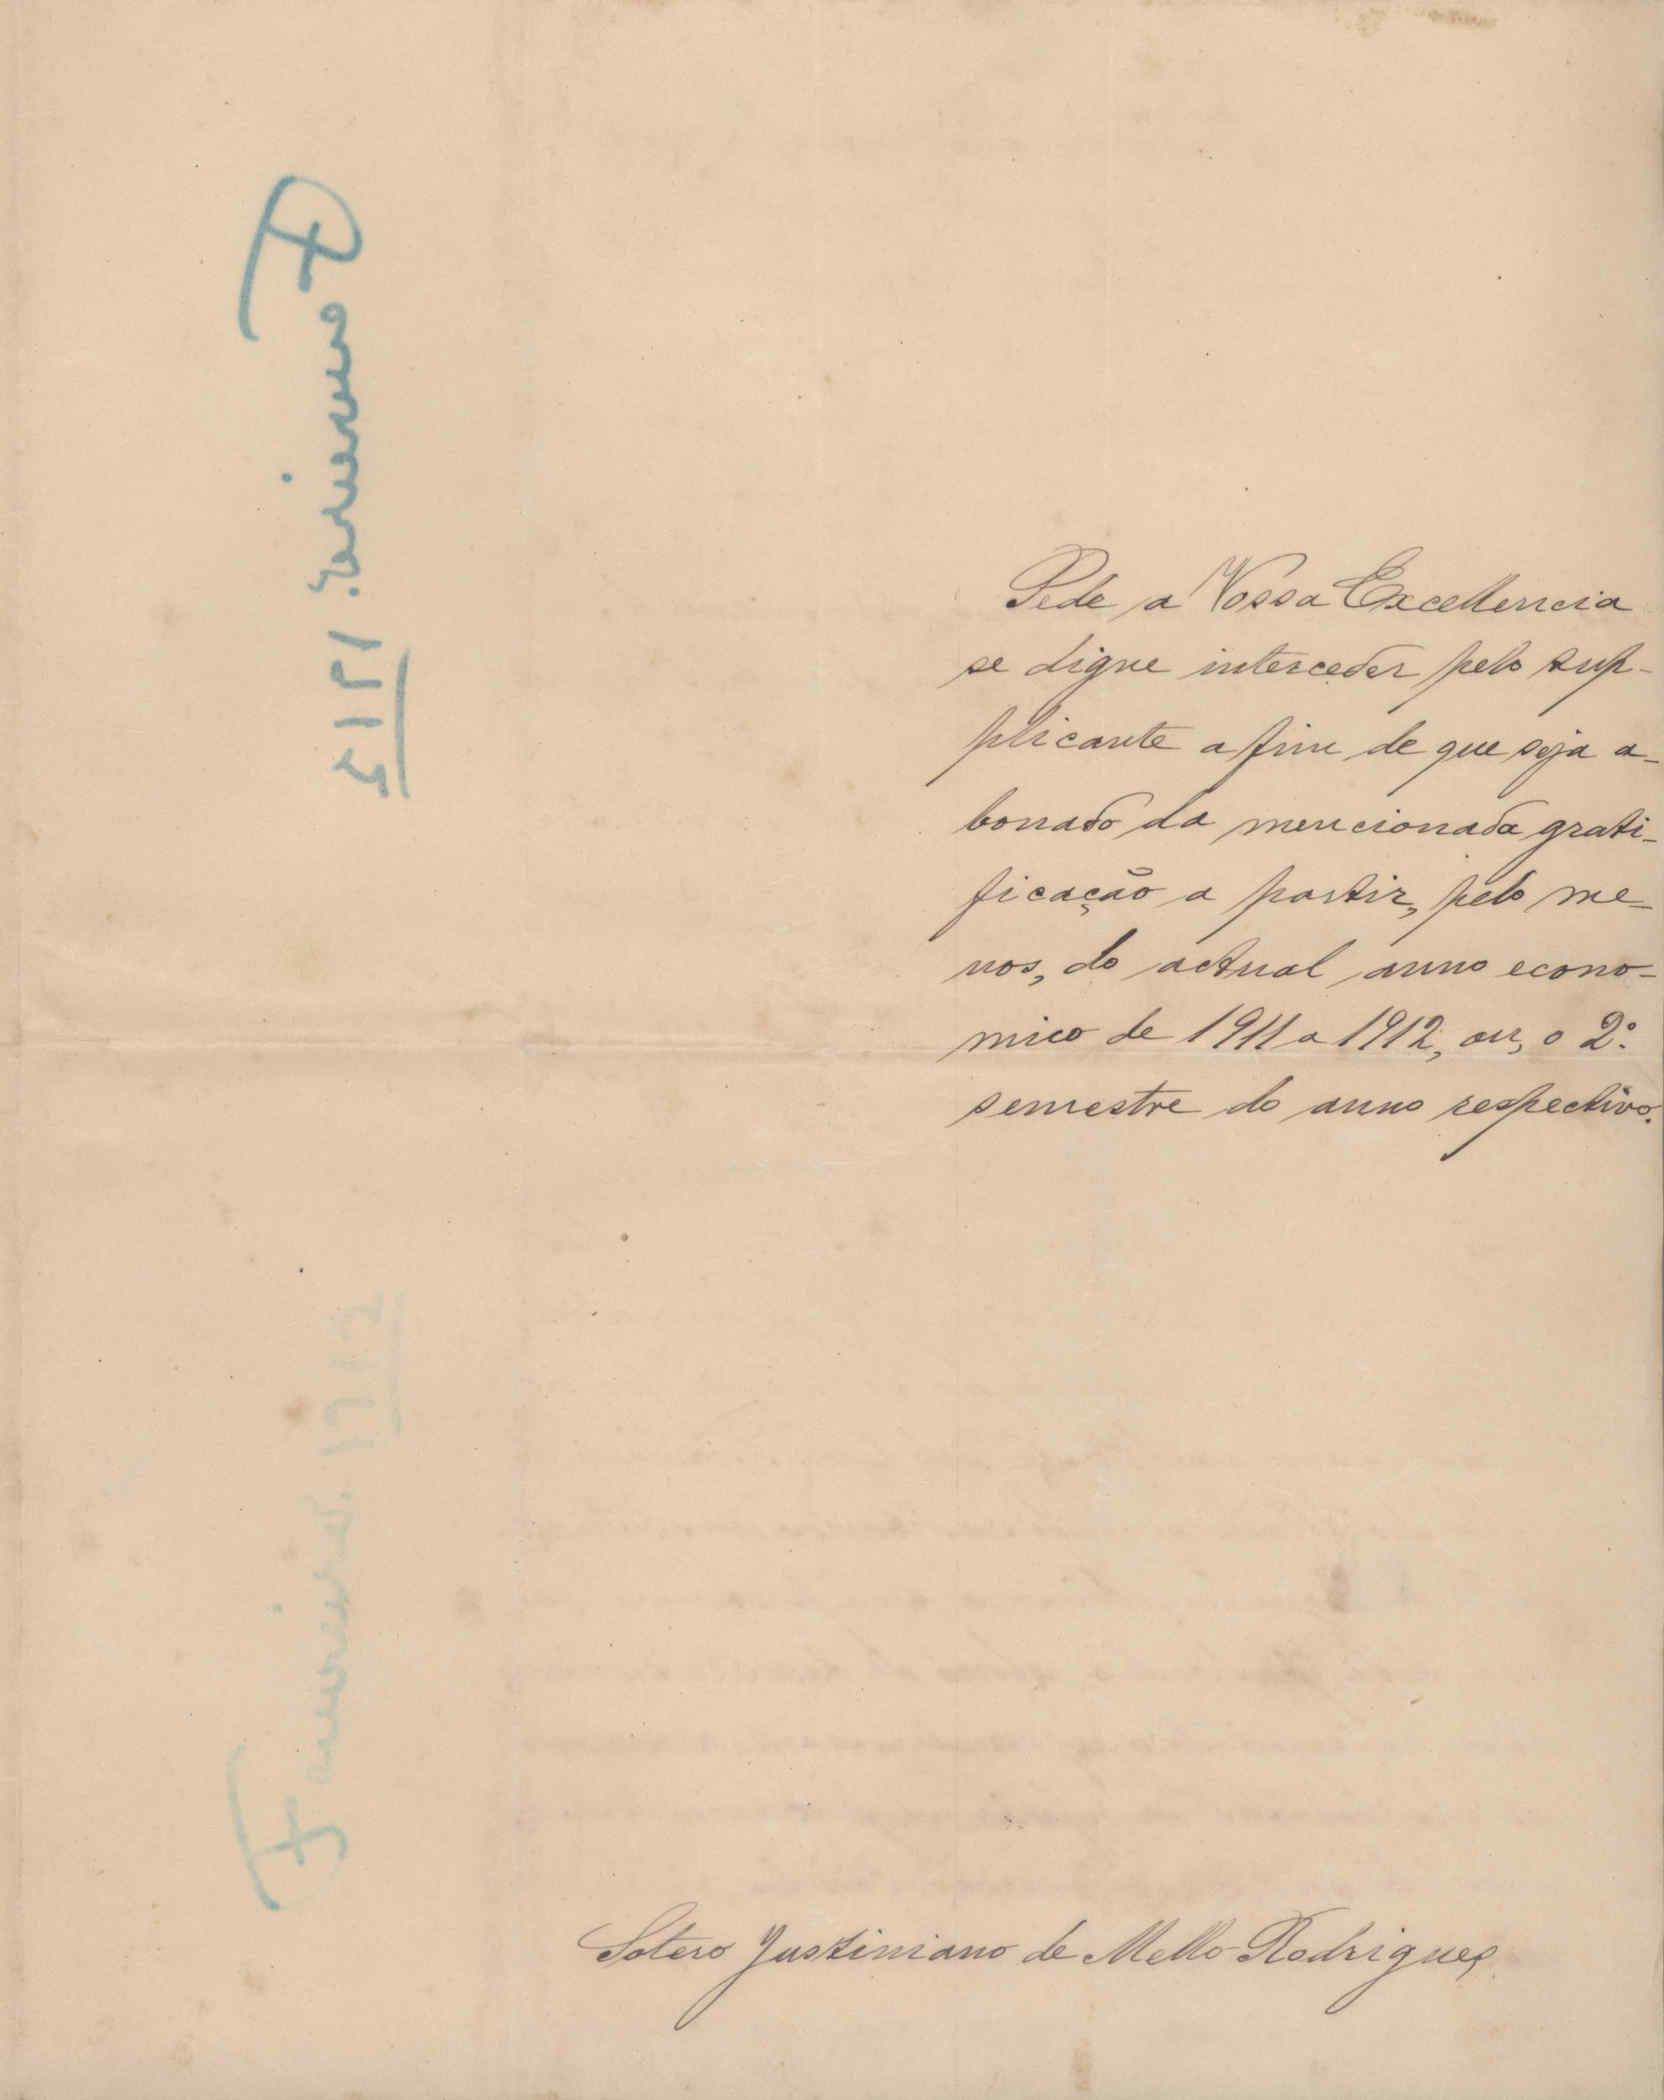 Pede a Vossa Excellencia
se digne interceder pelo sup-
plicante a fim de que seja a-
bonado da mencionada grati-
ficação a partir, pelo me-
nos, do actual anno econo-
mico de 1911 a 1912, ou, o 2º
semestre do anno respectivo.
Sotero Justiniano de Mello Rodrigues